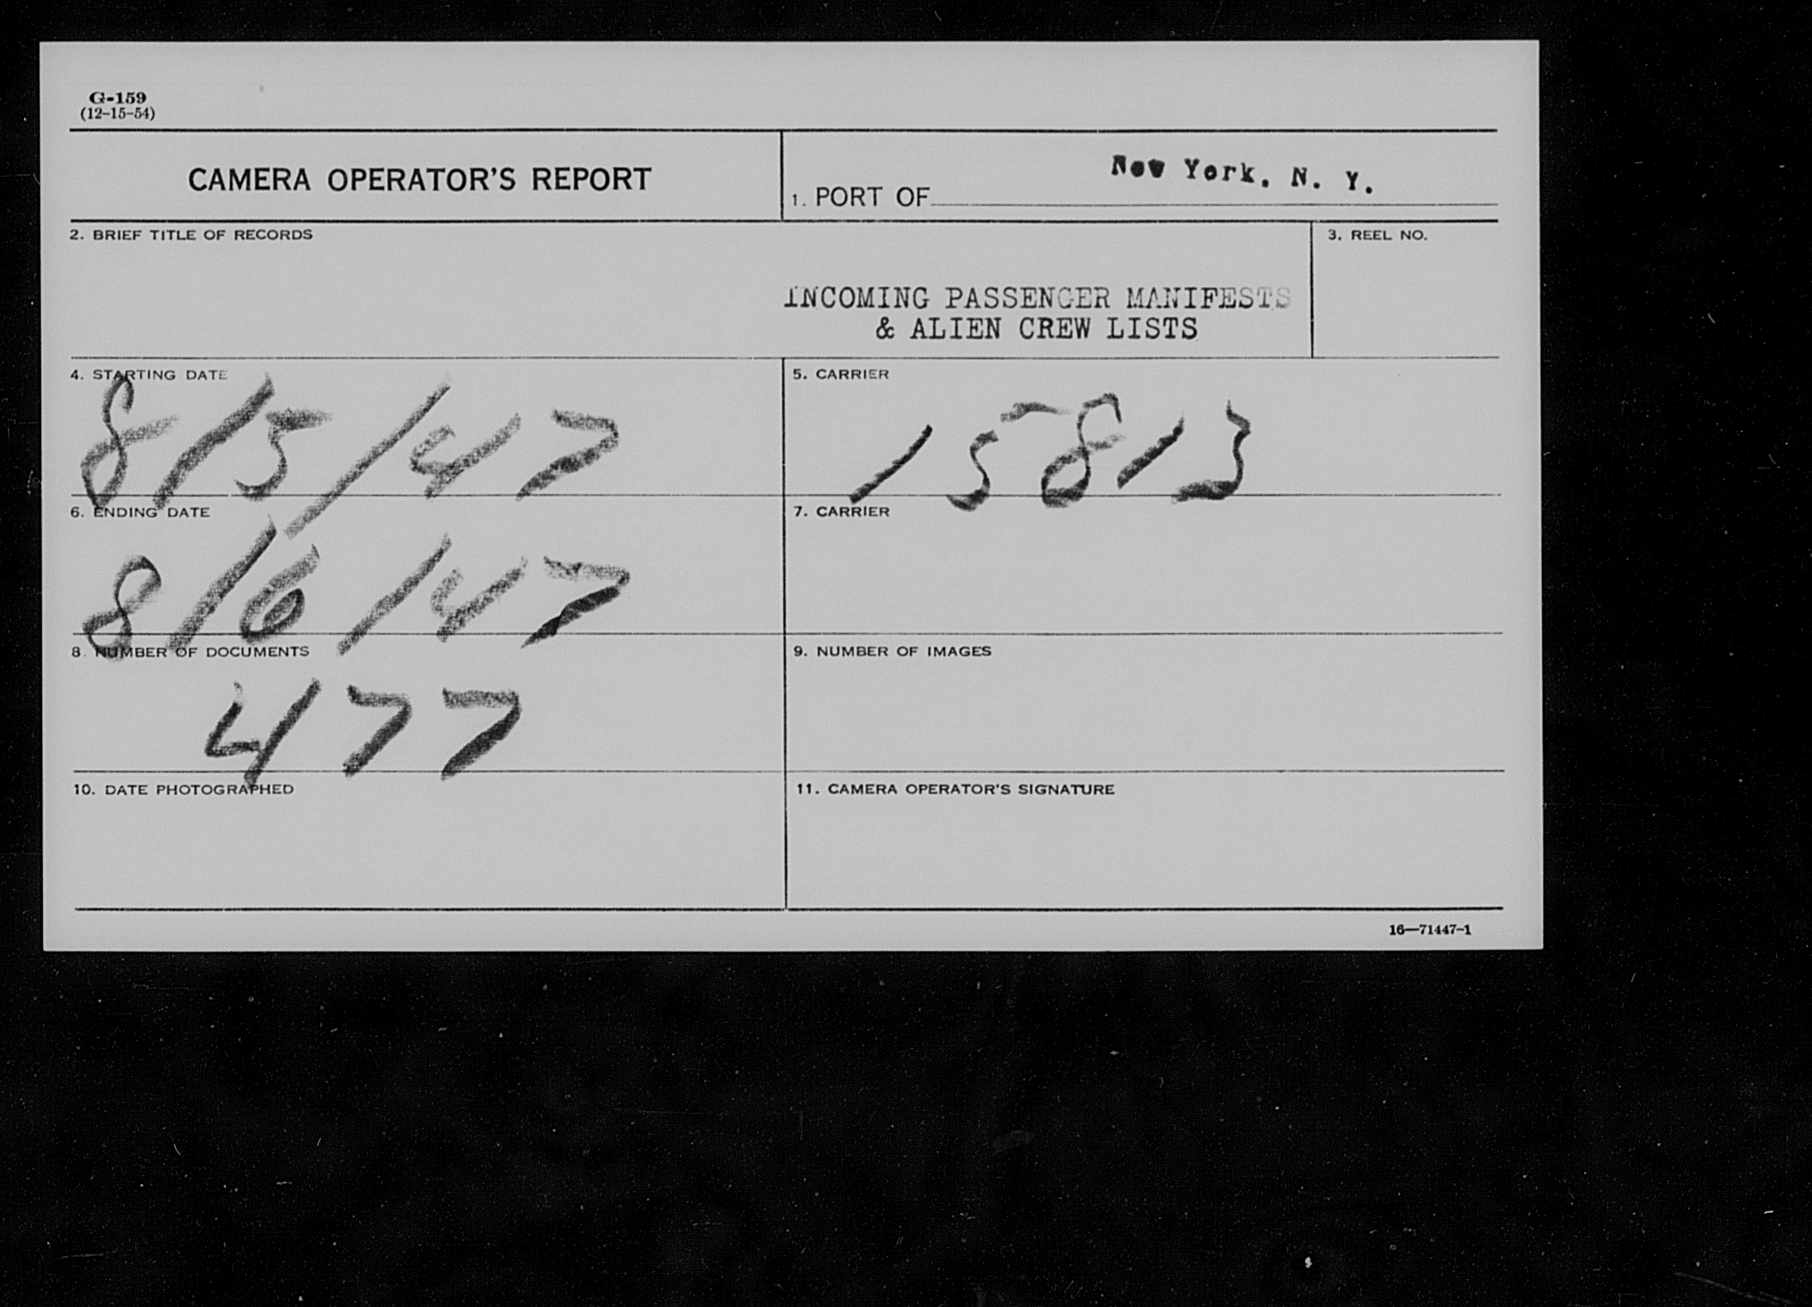 G-159
(12-15-54)
CAMERA OPERATOR'S REPORT
1. PORT OF New York, N. Y.
2. BRIEF TITLE OF RECORDS
INCOMING PASSENGER MANIFESTS
& ALIEN CREW LISTS
3. REEL NO.
4. STARTING DATE
8/5/47
5. CARRIER
15813
6. ENDING DATE
8/6/47
7. CARRIER
8. NUMBER OF DOCUMENTS
477
9. NUMBER OF IMAGES
10. DATE PHOTOGRAPHED
11. CAMERA OPERATOR'S SIGNATURE
16—71447-1